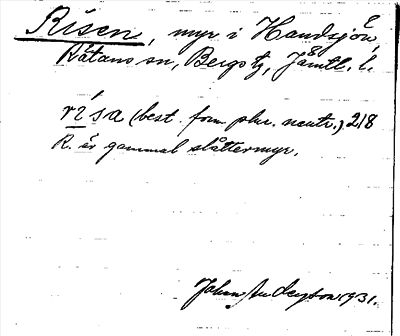 Risen, myr i Handsjön,
Rätans sn, Bergs tg, Jämtl. l.
rísa (best. form plur. neutr.) 218
R. är gammal slåttermyr.
Johan Anderson 1931.